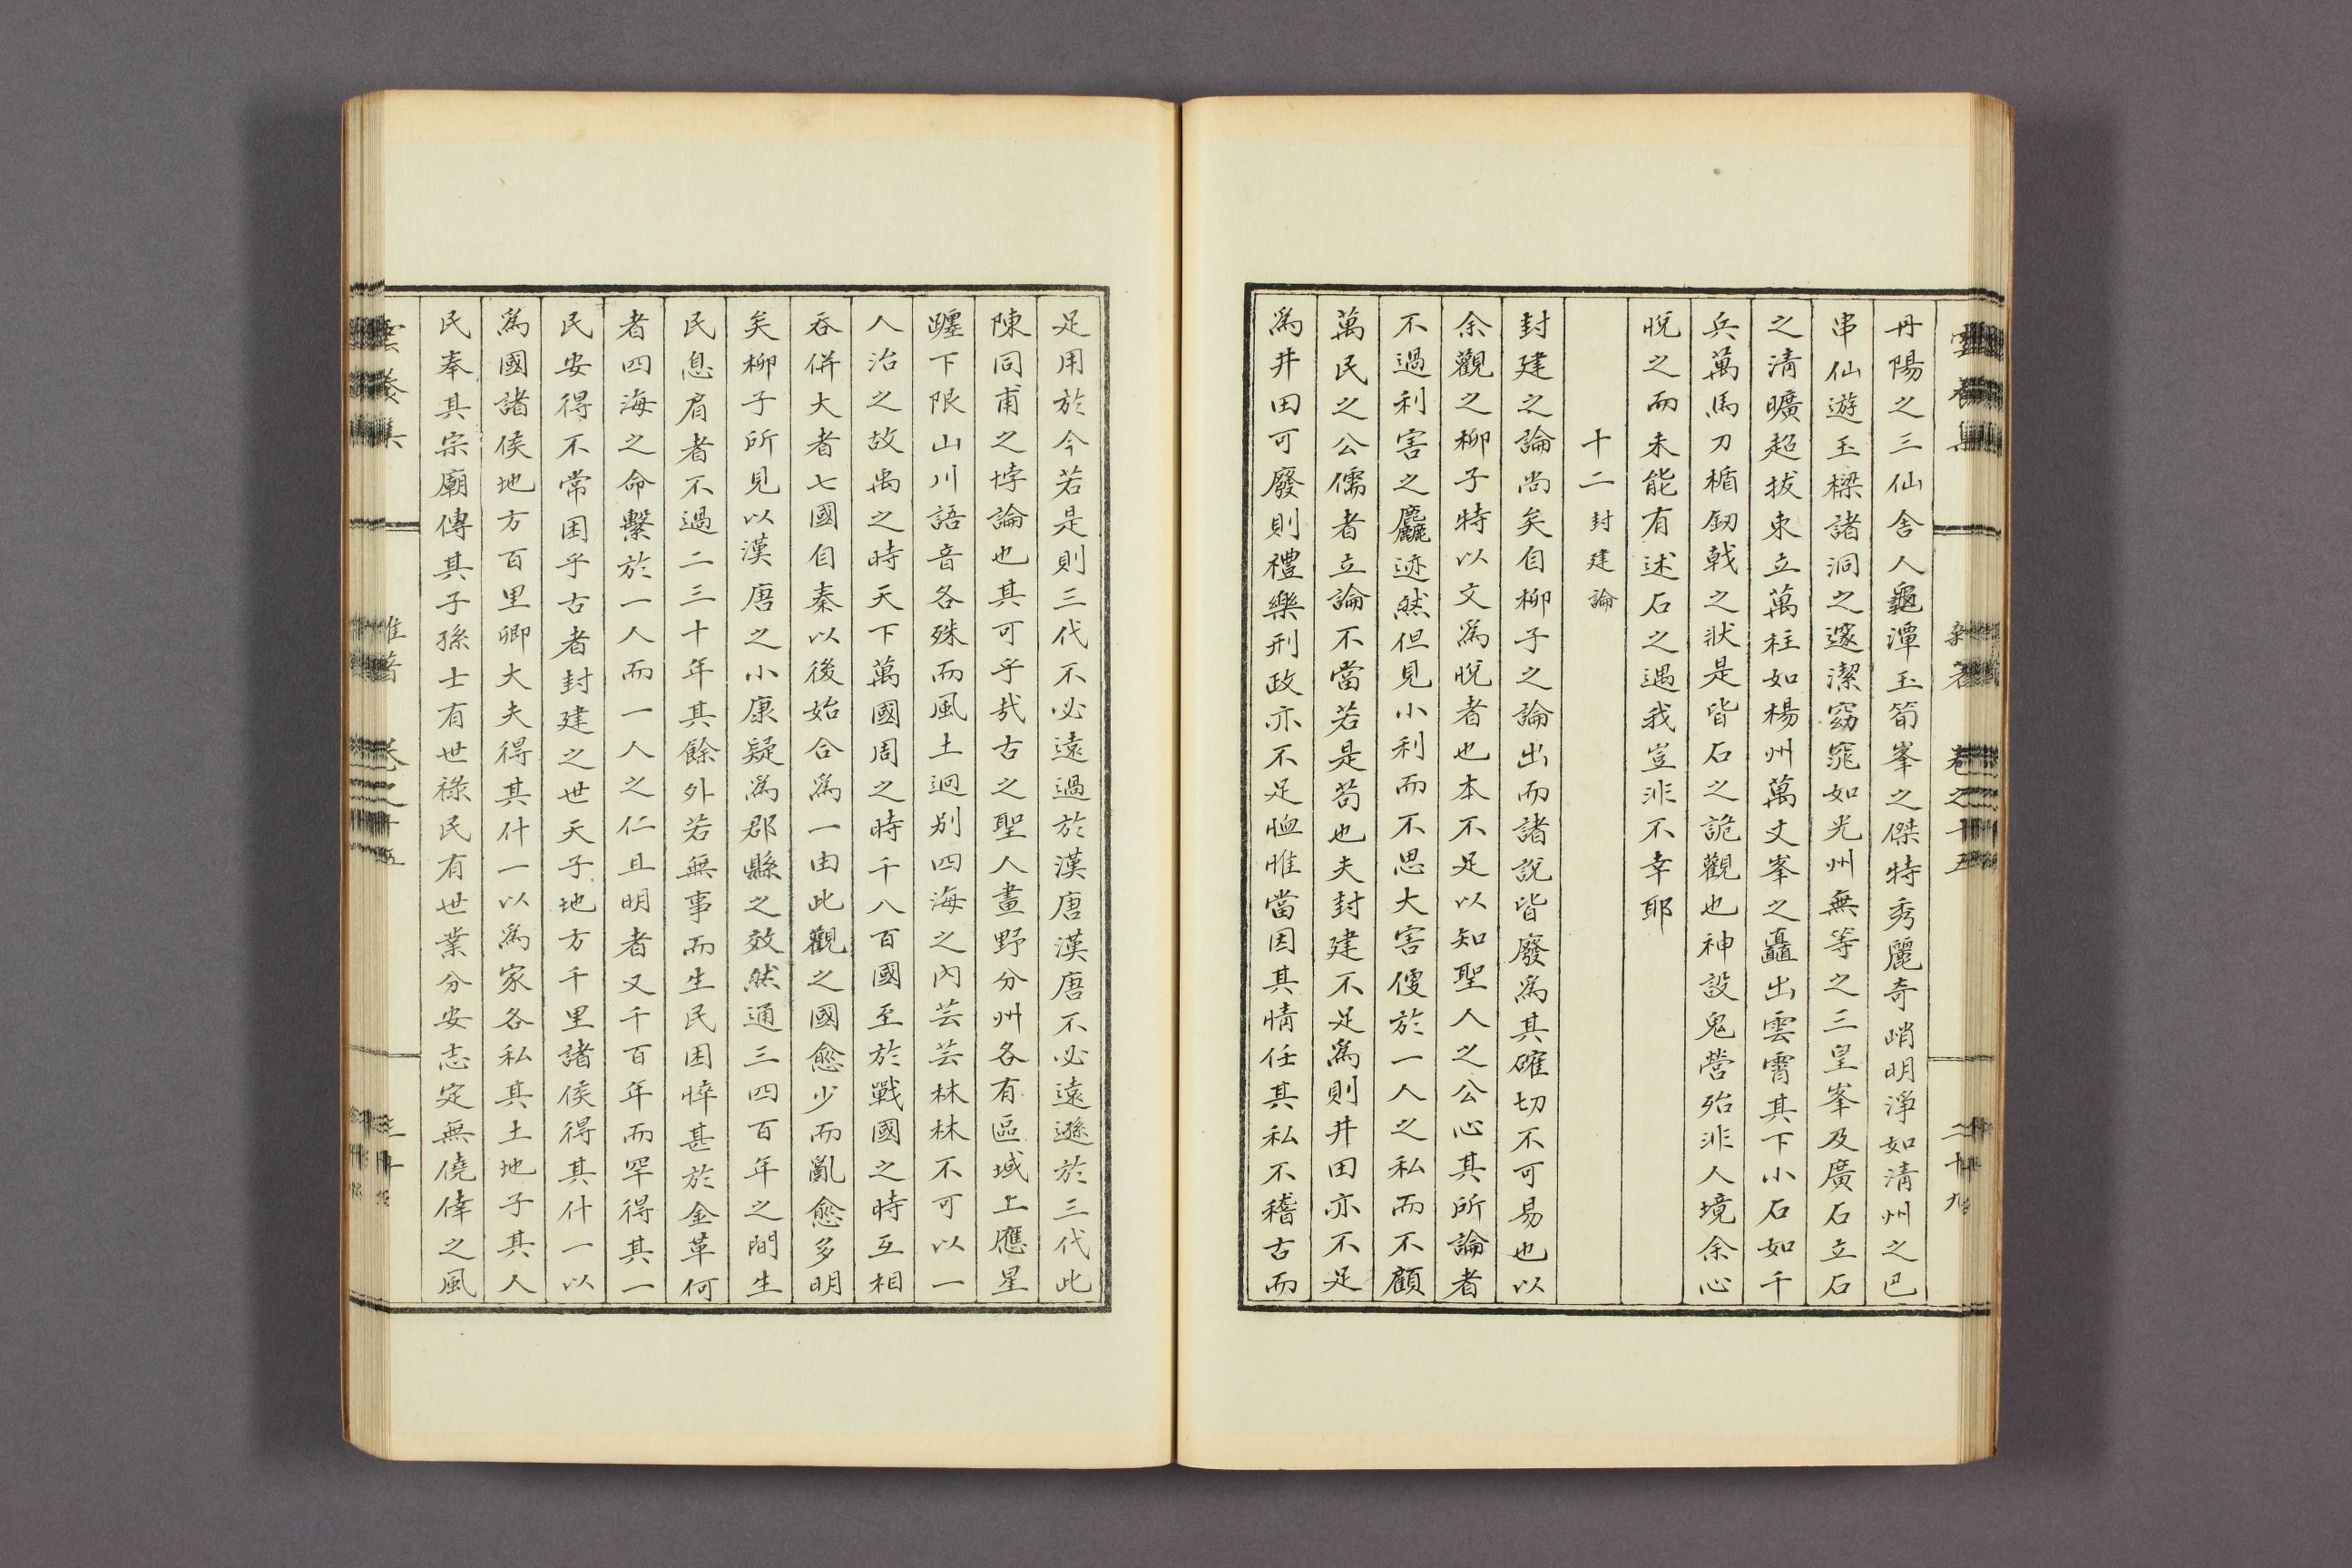 丹陽之三仙舍人龜潭玉筍峯之傑特秀麗奇峭明淨如淸州之巴
串仙遊玉樑諸洞之邃潔窈窕如光州無等之三皇峯及廣石立石
之淸曠超拔束立萬柱如楊州萬丈峯之矗出雲霄其下小石如千
兵萬馬刀楯釰戟之狀是皆石之詭觀也神設鬼營殆非人境余心
悅之而未能有述石之遇我豈非不幸耶
十二封建論
封建之論尙矣自柳子之論出而諸說皆廢爲其確切不可易也以
余觀之柳子特以文爲悅者也本不足以知聖人之公心其所論者
不過利害之麤迹然但見小利而不思大害傻於一人之私而不顧
萬民之公儒者立論不當若是苟也夫封建不足爲則井田亦不足
爲井田可廢則禮樂刑政亦不足恤惟當因其情任其私不稽古而
足用於今若是則三代不必遠過於漢唐漢唐不必遠遜於三代此
陳同甫之悖論也其可乎哉古之聖人畫野分州各有區域上應星
躔下限山川語音各殊而風土迥別四海之內芸芸林林不可以一
人治之故禹之時天下萬國周之時千八百國至於戰國之時互相
吞倂大者七國自秦以後始合爲一由此觀之國愈少而亂愈多明
矣柳子所見以漢唐之小康疑爲郡縣之效然通三四百年之間生
民息肩者不過二三十年其餘外若無事而生民困悴甚於金革何
者四海之命繫於一人而一人之仁且明者又千百年而罕得其一
民安得不常困乎古者封建之世天子地方千里諸侯得其什一以
爲國諸侯地方百里卿大夫得其什一以爲家各私其土地子其人
民奉其宗廟傳其子孫士有世祿民有世業分安志定無僥倖之風